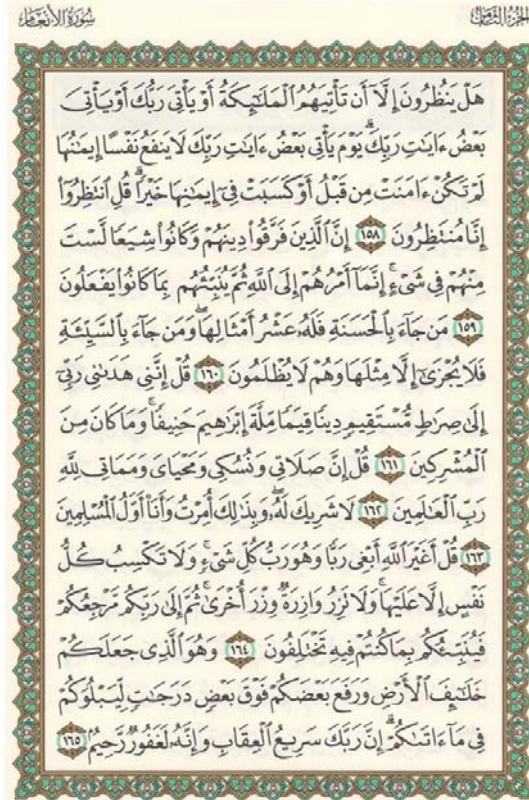 الجزء الثامن
سورة الأنعام
هَلْ يَنظُرُونَ إِلَّآ أَن تَأْتِيَهُمُ الْمَلَٰٓئِكَةُ أَوْ يَأْتِىَ رَبُّكَ أَوْ يَأْتِىَ
بَعْضُ ءَايَٰتِ رَبِّكَ ۗ يَوْمَ يَأْتِى بَعْضُ ءَايَٰتِ رَبِّكَ لَا يَنفَعُ نَفْسًا إِيمَٰنُهَا
لَمْ تَكُنْ ءَامَنَتْ مِن قَبْلُ أَوْ كَسَبَتْ فِىٓ إِيمَٰنِهَا خَيْرًا ۗ قُلِ انتَظِرُوٓا۟
إِنَّا مُنتَظِرُونَ ١٥٨ إِنَّ الَّذِينَ فَرَّقُوا۟ دِينَهُمْ وَكَانُوا۟ شِيَعًا لَّسْتَ
مِنْهُمْ فِى شَىْءٍ ۚ إِنَّمَآ أَمْرُهُمْ إِلَى اللَّهِ ثُمَّ يُنَبِّئُهُم بِمَا كَانُوا۟ يَفْعَلُونَ
١٥٩ مَن جَآءَ بِالْحَسَنَةِ فَلَهُۥ عَشْرُ أَمْثَالِهَا ۖ وَمَن جَآءَ بِالسَّيِّئَةِ
فَلَا يُجْزَىٰٓ إِلَّا مِثْلَهَا وَهُمْ لَا يُظْلَمُونَ ١٦٠ قُلْ إِنَّنِى هَدَىٰنِى رَبِّىٓ
إِلَىٰ صِرَٰطٍ مُّسْتَقِيمٍ دِينًا قِيَمًا مِّلَّةَ إِبْرَٰهِيمَ حَنِيفًا ۚ وَمَا كَانَ مِنَ
الْمُشْرِكِينَ ١٦١ قُلْ إِنَّ صَلَاتِى وَنُسُكِى وَمَحْيَاىَ وَمَمَاتِى لِلَّهِ
رَبِّ الْعَٰلَمِينَ ١٦٢ لَا شَرِيكَ لَهُۥ ۖ وَبِذَٰلِكَ أُمِرْتُ وَأَنَا۠ أَوَّلُ الْمُسْلِمِينَ
١٦٣ قُلْ أَغَيْرَ اللَّهِ أَبْغِى رَبًّا وَهُوَ رَبُّ كُلِّ شَىْءٍ ۚ وَلَا تَكْسِبُ كُلُّ
نَفْسٍ إِلَّا عَلَيْهَا ۚ وَلَا تَزِرُ وَازِرَةٌ وِزْرَ أُخْرَىٰ ۚ ثُمَّ إِلَىٰ رَبِّكُم مَّرْجِعُكُمْ
فَيُنَبِّئُكُم بِمَا كُنتُمْ فِيهِ تَخْتَلِفُونَ ١٦٤ وَهُوَ الَّذِى جَعَلَكُمْ
خَلَٰٓئِفَ الْأَرْضِ وَرَفَعَ بَعْضَكُمْ فَوْقَ بَعْضٍ دَرَجَٰتٍ لِّيَبْلُوَكُمْ
فِى مَآ ءَاتَىٰكُمْ ۗ إِنَّ رَبَّكَ سَرِيعُ الْعِقَابِ وَإِنَّهُۥ لَغَفُورٌ رَّحِيمٌۢ ١٦٥